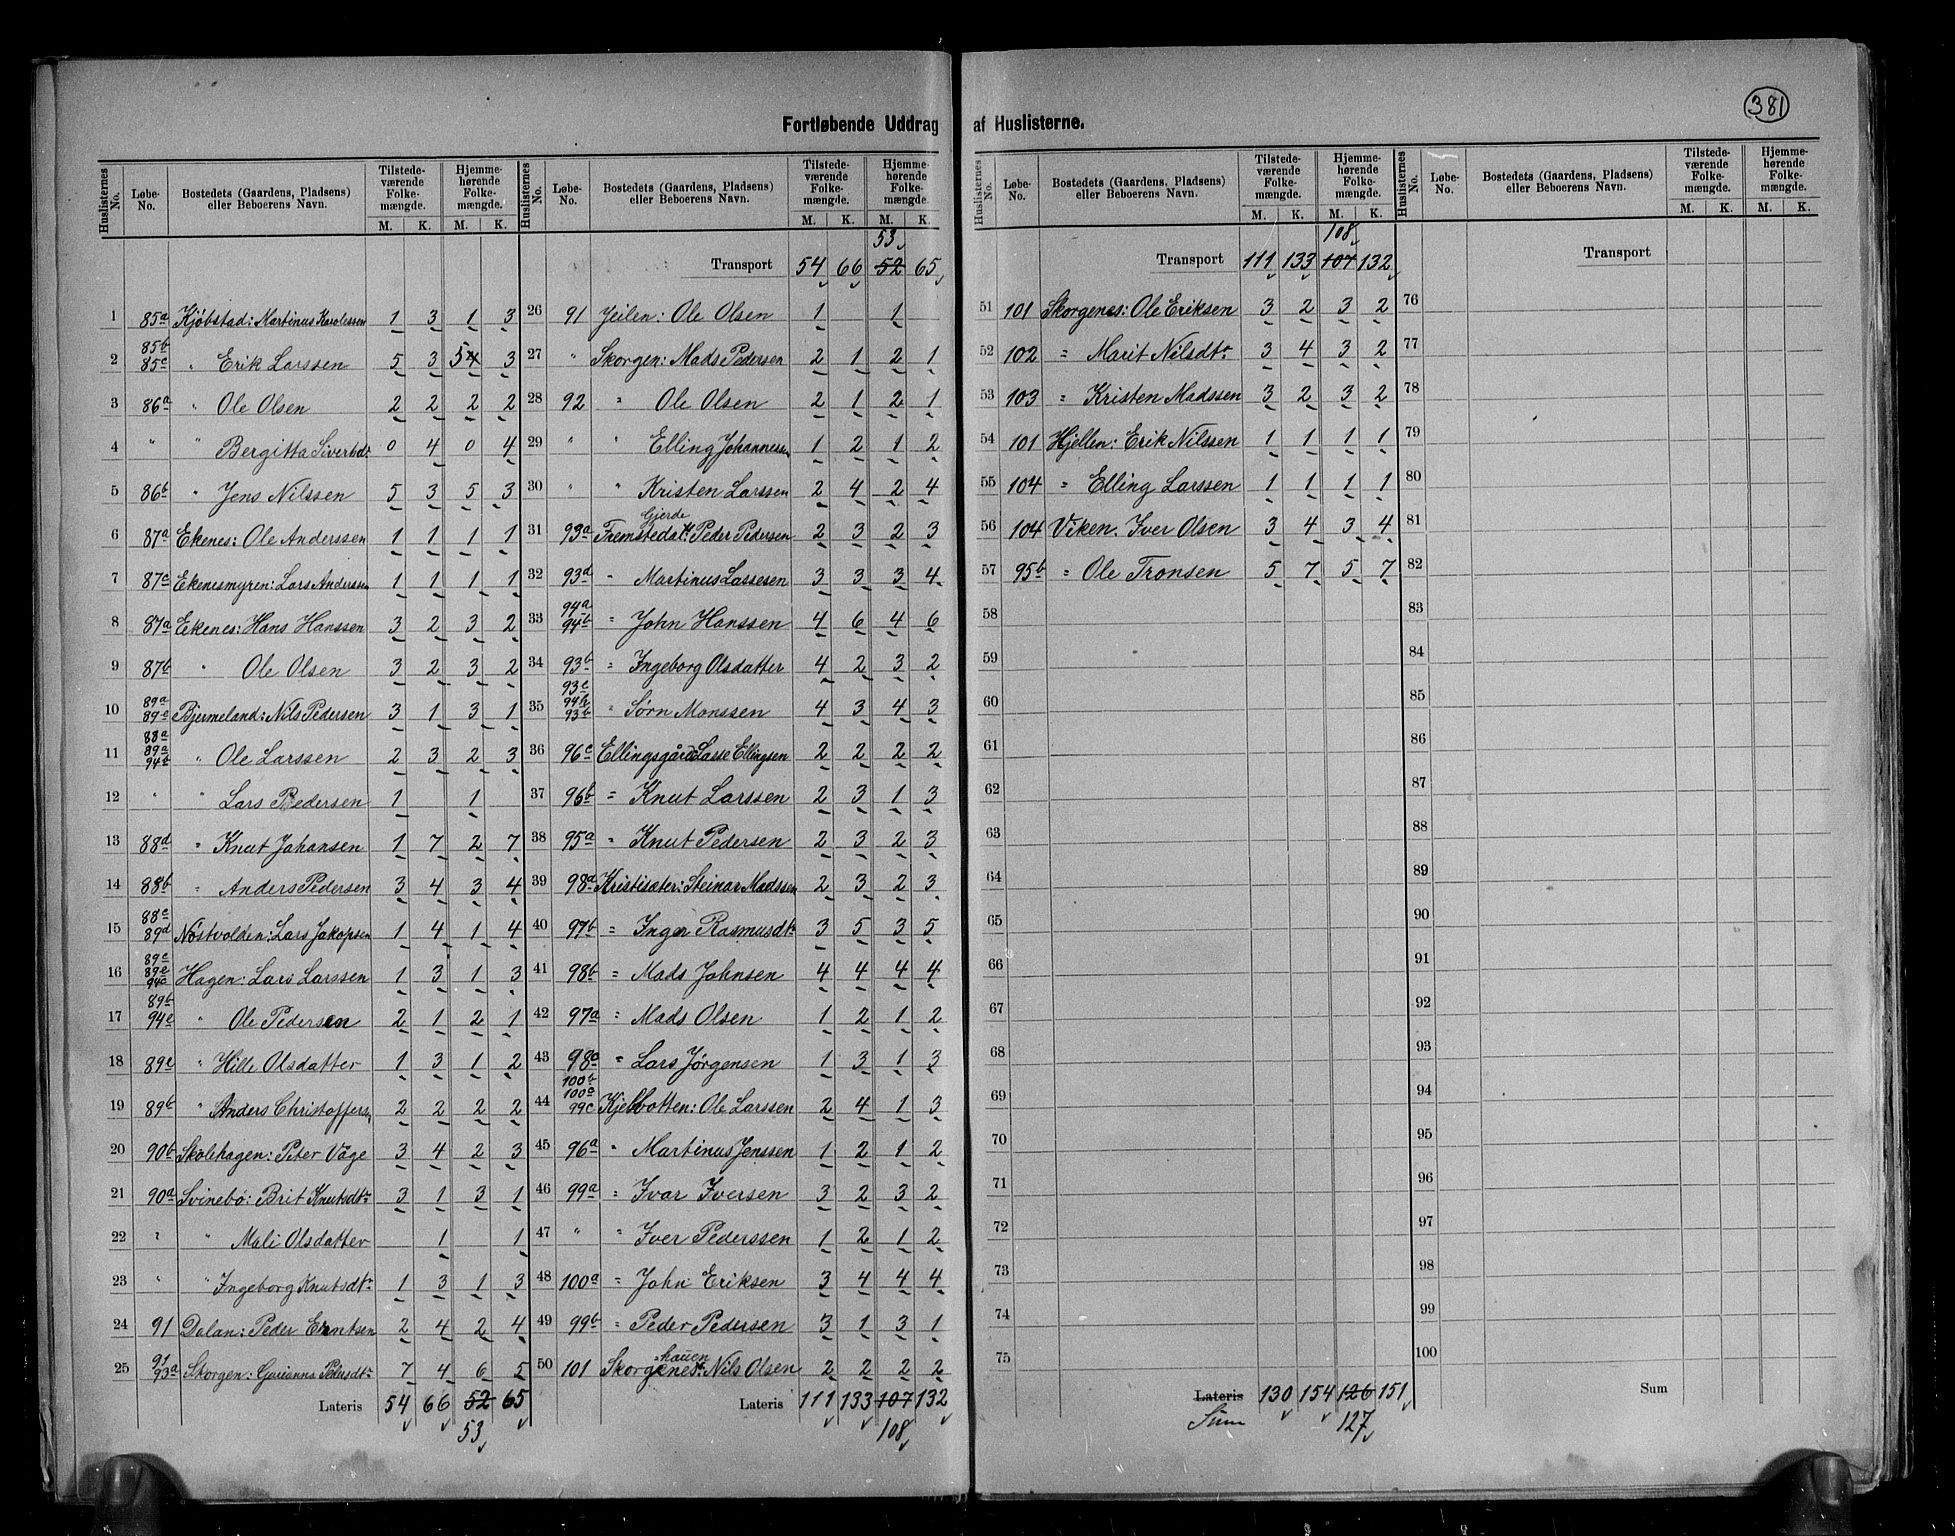 381
Fortløbende Uddrag af Huslisterne.
Huslisternes No. | Løbe-No. | Bostedets (Gaardens, Pladsens) eller Beboerens Navn. | Tilstedeværende Folkemængde. M. K. | Hjemmehørende Folkemængde. M. K.
1 85a Kjøbstad: Martinus Karolessen 1 3 1 3
2 85b 85c " Erik Larssen 5 3 5 4 3
3 86a " Ole Olsen 2 2 2 2
4 " " Bergitta Sivertsdr 0 4 0 4
5 86b " Jens Nilssen 5 3 5 3
6 87a Ekenes: Ole Anderssen 1 1 1 1
7 87c Ekenesmyren: Lars Anderssen 1 1 1 1
8 87a Eekenes: Hans Hanssen 3 2 3 2
9 87b " Ole Olsen 3 2 3 2
10 89a 89c Bjermeland: Nils Pedersen 3 1 3 1
11 88a 89a 94b " Ole Larssen 2 3 2 3
12 " " Lars Pedersen 1 1
13 88d " Knut Johansen 1 7 2 7
14 88b " Anders Pedersen 3 4 3 4
15 88c 89d Nøstvolden: Lars Jakopsen 1 4 1 4
16 89c 89e 94c Hagen: Lars Larssen 1 3 1 3
17 89b 94e " Ole Pedersen 2 1 2 1
18 89e " Hille Olsdatter 1 3 1 2
19 89b " Anders Christoffers 2 2 2 2
20 90b Skolehagen: Peter Våge 3 4 2 3
21 90a Svinebø: Brit Knutsdtr 3 1 3 1
22 " " Mali Olsdatter 1 1
23 " " Ingeborg Knutsdtr 1 3 1 3
24 91 Dalan: Peder Erntsen 2 4 2 4
25 91 93a Skorgen: Gurianna Pedersdtr 7 4 6 5
Lateris 54 66 52 65
53
Huslisternes No. | Løbe-No. | Bostedets (Gaardens, Pladsens) eller Beboerens Navn. | Tilstedeværende Folkemængde. M. K. | Hjemmehørende Folkemængde. M. K.
53
Transport 54 66 52 65
26 91 Jeilen: Ole Olsen 1 1
27 " Skorgen: Mads Pedersen 2 1 2 1
28 92 " Ole Olsen 2 1 2 1
29 " " Elling Johannessen 1 2 1 2
30 " " Kristen Larssen 2 4 2 4
Gjerde
31 93a Fremstedal: Peder Pedersen 2 3 2 3
32 93d " Martinus Lassesen 3 3 3 4
33 94a 94b " John Hanssen 4 6 4 6
34 93b " Ingeborg Olsdatter 4 2 3 2
35 93c 94b 93b " Sørn Monssen 4 3 4 3
36 96c Ellingsgård: Lasse Ellingsen 2 2 2 2
37 96b " Knut Larssen 2 3 1 3
38 95a " Knut Pedersen 2 3 2 3
39 98a Kristisæter: Steinar Madssen 2 3 2 3
40 97b " Inger Rasmusdtr 3 5 3 5
41 98b " Mads Johnsen 4 4 4 4
42 97a " Mads Olsen 1 2 1 2
43 98c " Lars Jørgensen 1 3 1 3
44 100b 100a 99c Kjelbotten: Ole Larssen 2 4 1 3
45 96a " Martinus Jenssen 1 2 1 2
46 99a " Ivar Iversen 3 2 3 2
47 " " Iver Pederssen 1 2 1 2
48 100a " John Eriksen 3 4 4 4
49 99b " Peder Pedersen 3 1 3 1
hauen
50 101 Skorgenes: Nils Olsen 2 2 2 2
Lateris 111 133 107 132
108
Huslisternes No. | Løbe-No. | Bostedets (Gaardens, Pladsens) eller Beboerens Navn. | Tilstedeværende Folkemængde. M. K. | Hjemmehørende Folkemængde. M. K.
108
Transport 111 133 107 132
51 101 Skorgenes: Ole Eriksen 3 2 3 2
52 102 " Marit Nilsdtr 3 4 3 2
53 103 " Kristen Madssen 3 2 3 2
54 101 Hjellen: Erik Nilssen 1 1 1 1
55 104 " Elling Larssen 1 1 1 1
56 104 Viken. Iver Olsen 3 4 3 4
57 95b " Ole Tronsen 5 7 5 7
58
59
60
61
62
63
64
65
66
67
68
69
70
71
72
73
74
75
Lateris 130 154 126 151
Sum 127
Huslisternes No. | Løbe-No. | Bostedets (Gaardens, Pladsens) eller Beboerens Navn. | Tilstedeværende Folkemængde. M. K. | Hjemmehørende Folkemængde. M. K.
Transport
76
77
78
79
80
81
82
83
84
85
86
87
88
89
90
91
92
93
94
95
96
97
98
99
100
Sum